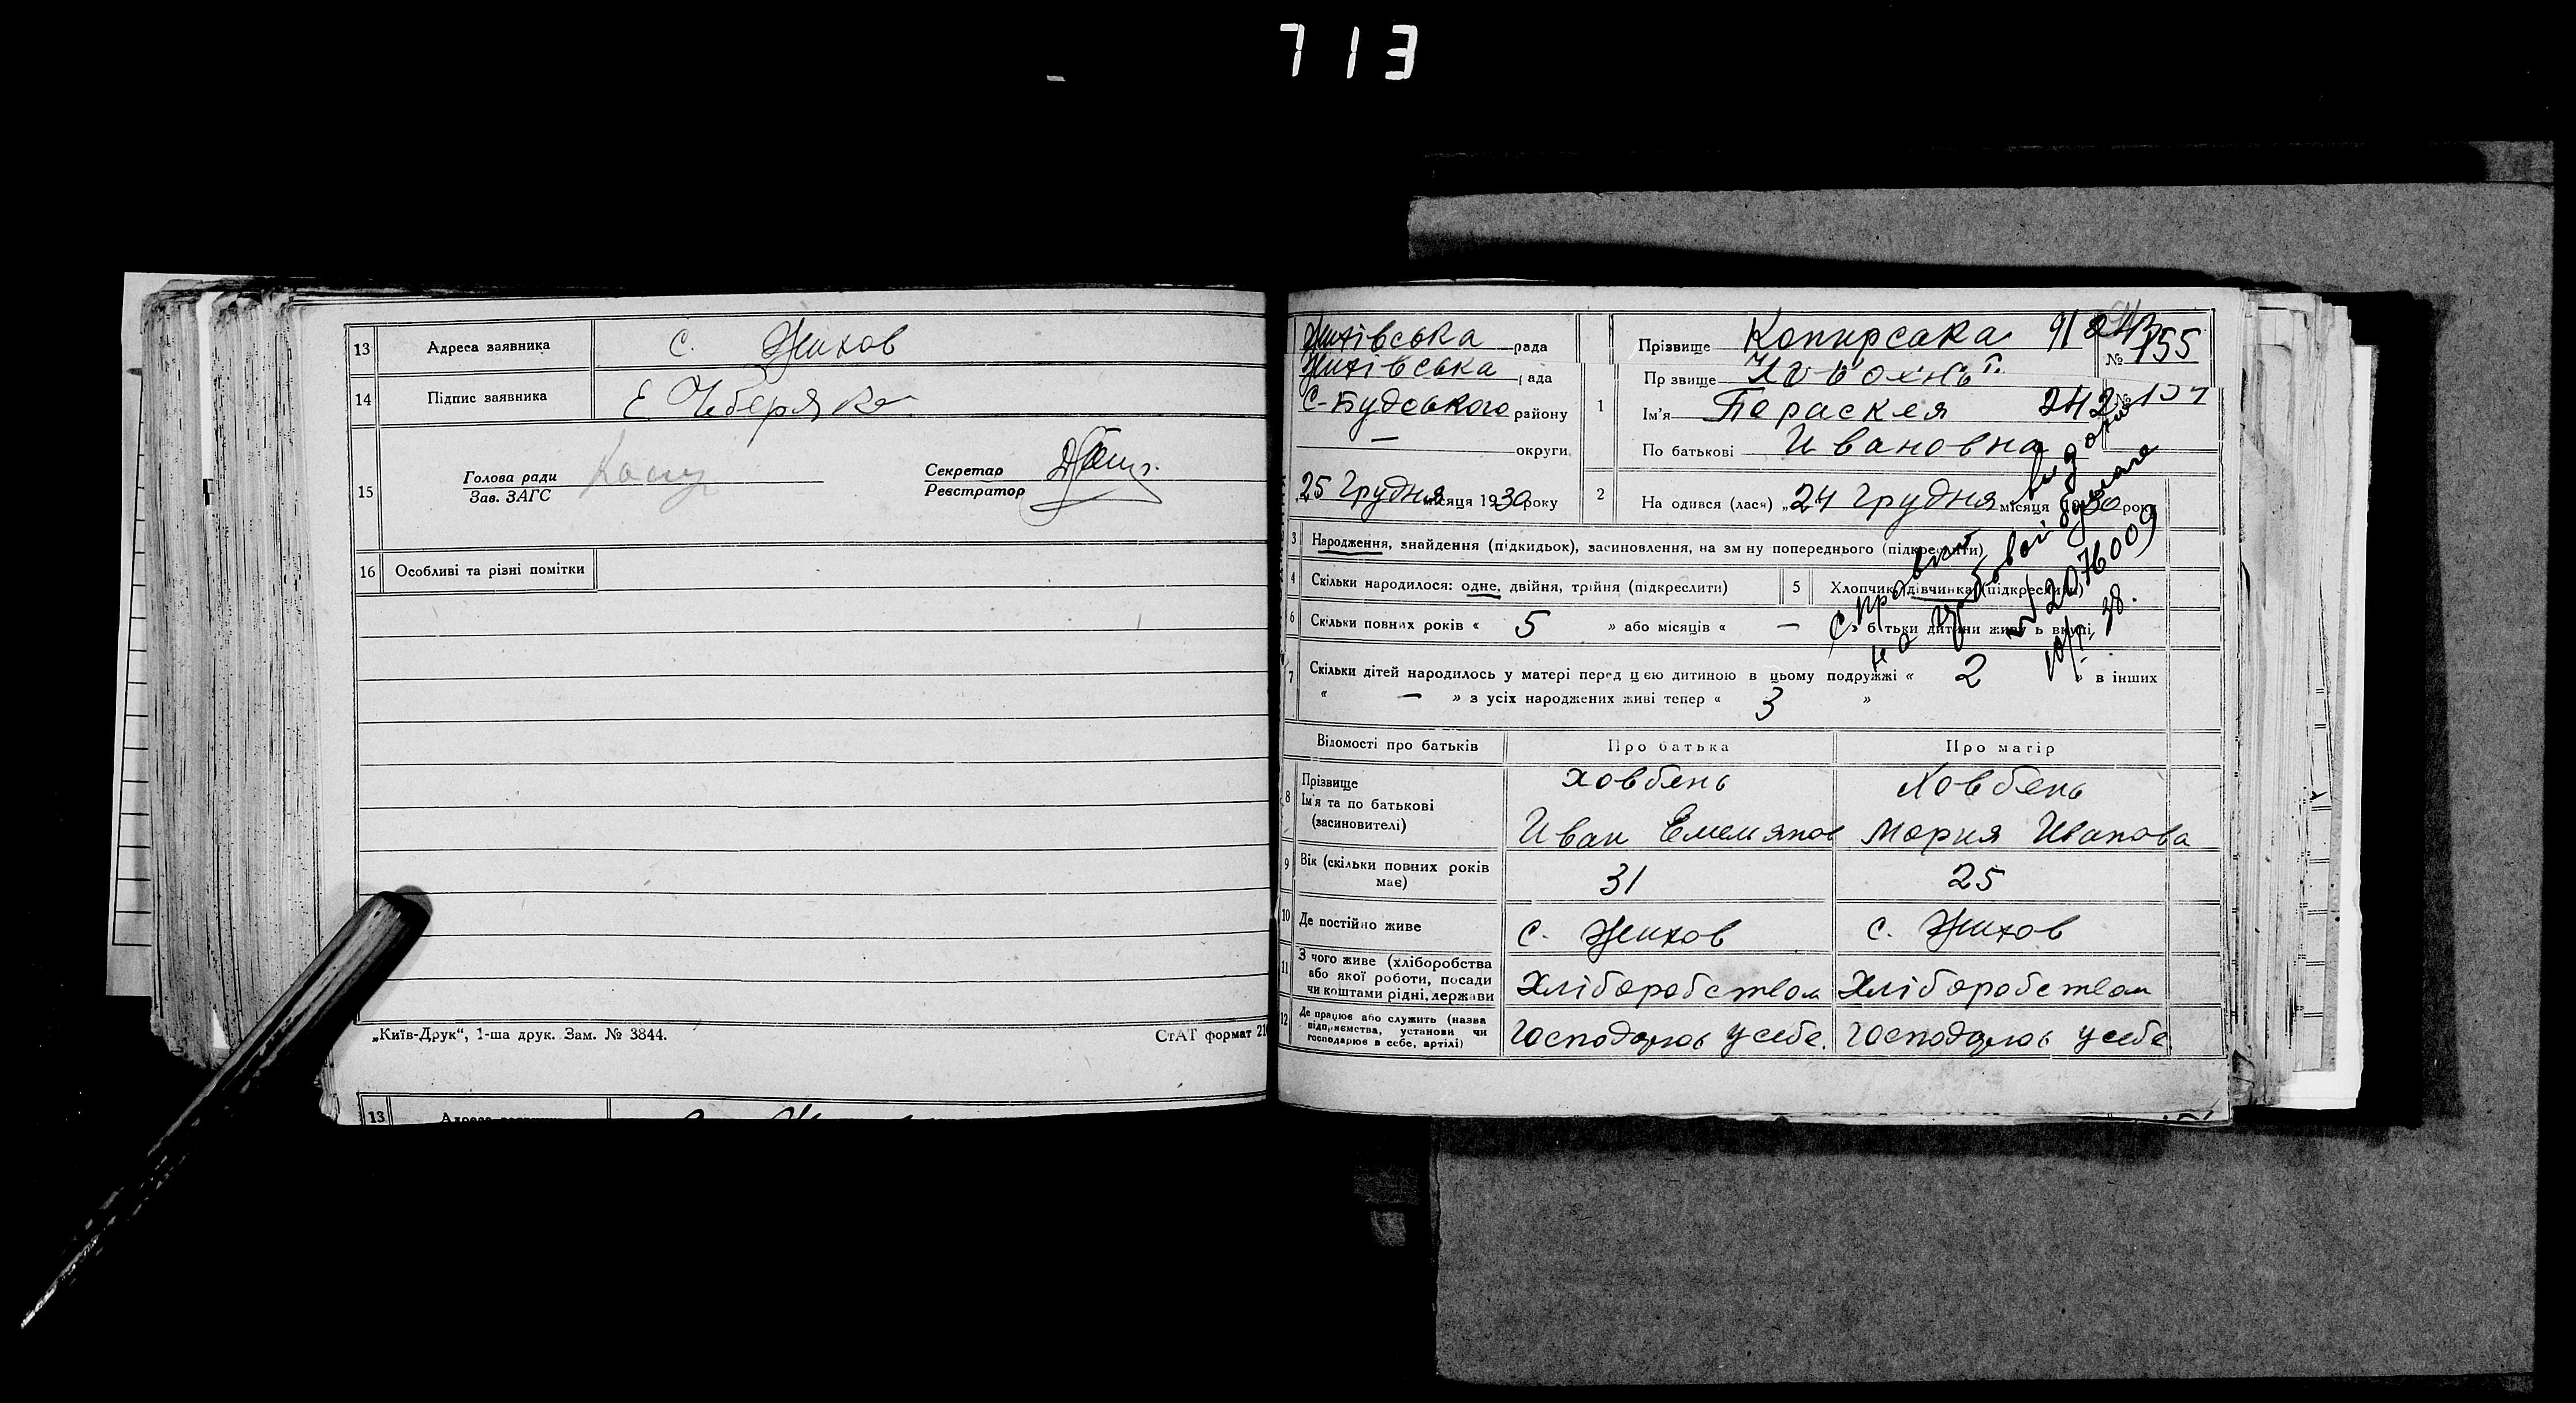 713
13 Адреса заявника с. Жихов
14 Підпис заявника Е Чеберяка
15 Голова ради
Зав. ЗАГС
Секретар
Реєстратор
16 Особливі та різні помітки
„Київ-Друк“, 1-ша друк. Зам. № 3844. СтАТ формат 21
13
Жихівська рада Прізвище Копирсака 91 № 155
Жихівська рада Прзвище
С-Будського району 1 Ім'я Параскея 242 №
— округи По батькові Ивановна
25 Грудня місяця 1930 року 2 На одився (лася) „24 Грудня місяця 30 року
3 Народження, знайдення (підкидьок), засиновлення, на зм ну попереднього (підкреслити)
4 Скільки народилося: одне, двійня, трійня (підкреслити) 5 Хлопчик, дівчинка (підкреслити)
6 Скільки повних років « 5 » або місяців « — » б тьки дитини живу ь вкупі
7 Скільки дітей народилось у матері перед цією дитиною в цьому подружжі « 2 » в інших
« — » з усіх народжених живі тепер « 3 »
Справка видана
на гербовой бумаге
207600
Відомості про батьків Про батька Про матір
8 Прізвище Ховбень Ховбень
Ім'я та по батькові
(засиновителі) Иван Емельянов Мария Иванова
9 Вік (скільки повних років
має) 31 25
10 Де постійно живе с. Жихов с. Жихов
11 З чого живе (хліборобства
або якої роботи, посади
чи коштами рідні, держави Хліборобством Хліборобством
12 Де працює або служить (назва
підприємства, установи чи
господарює в себе, артілі) Господарює у себе. Господарює у себе.